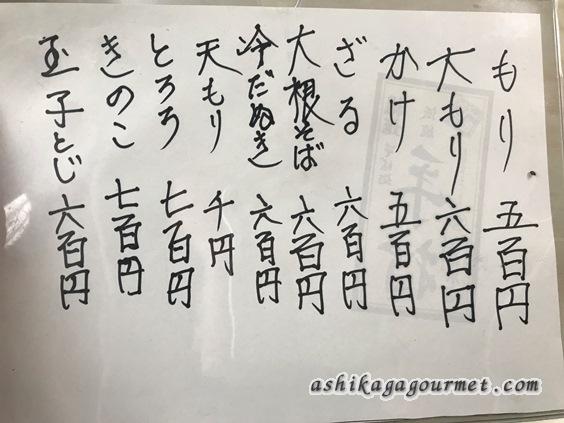 もり 五百円
大もり 六百円
かけ 五百円
ざる 六百円
大根そば 六百円
冷だぬき 六百円
天もり 千円
とろろ 七百円
きのこ 七百円
玉子とじ 六百円
ashikagagourmet.com